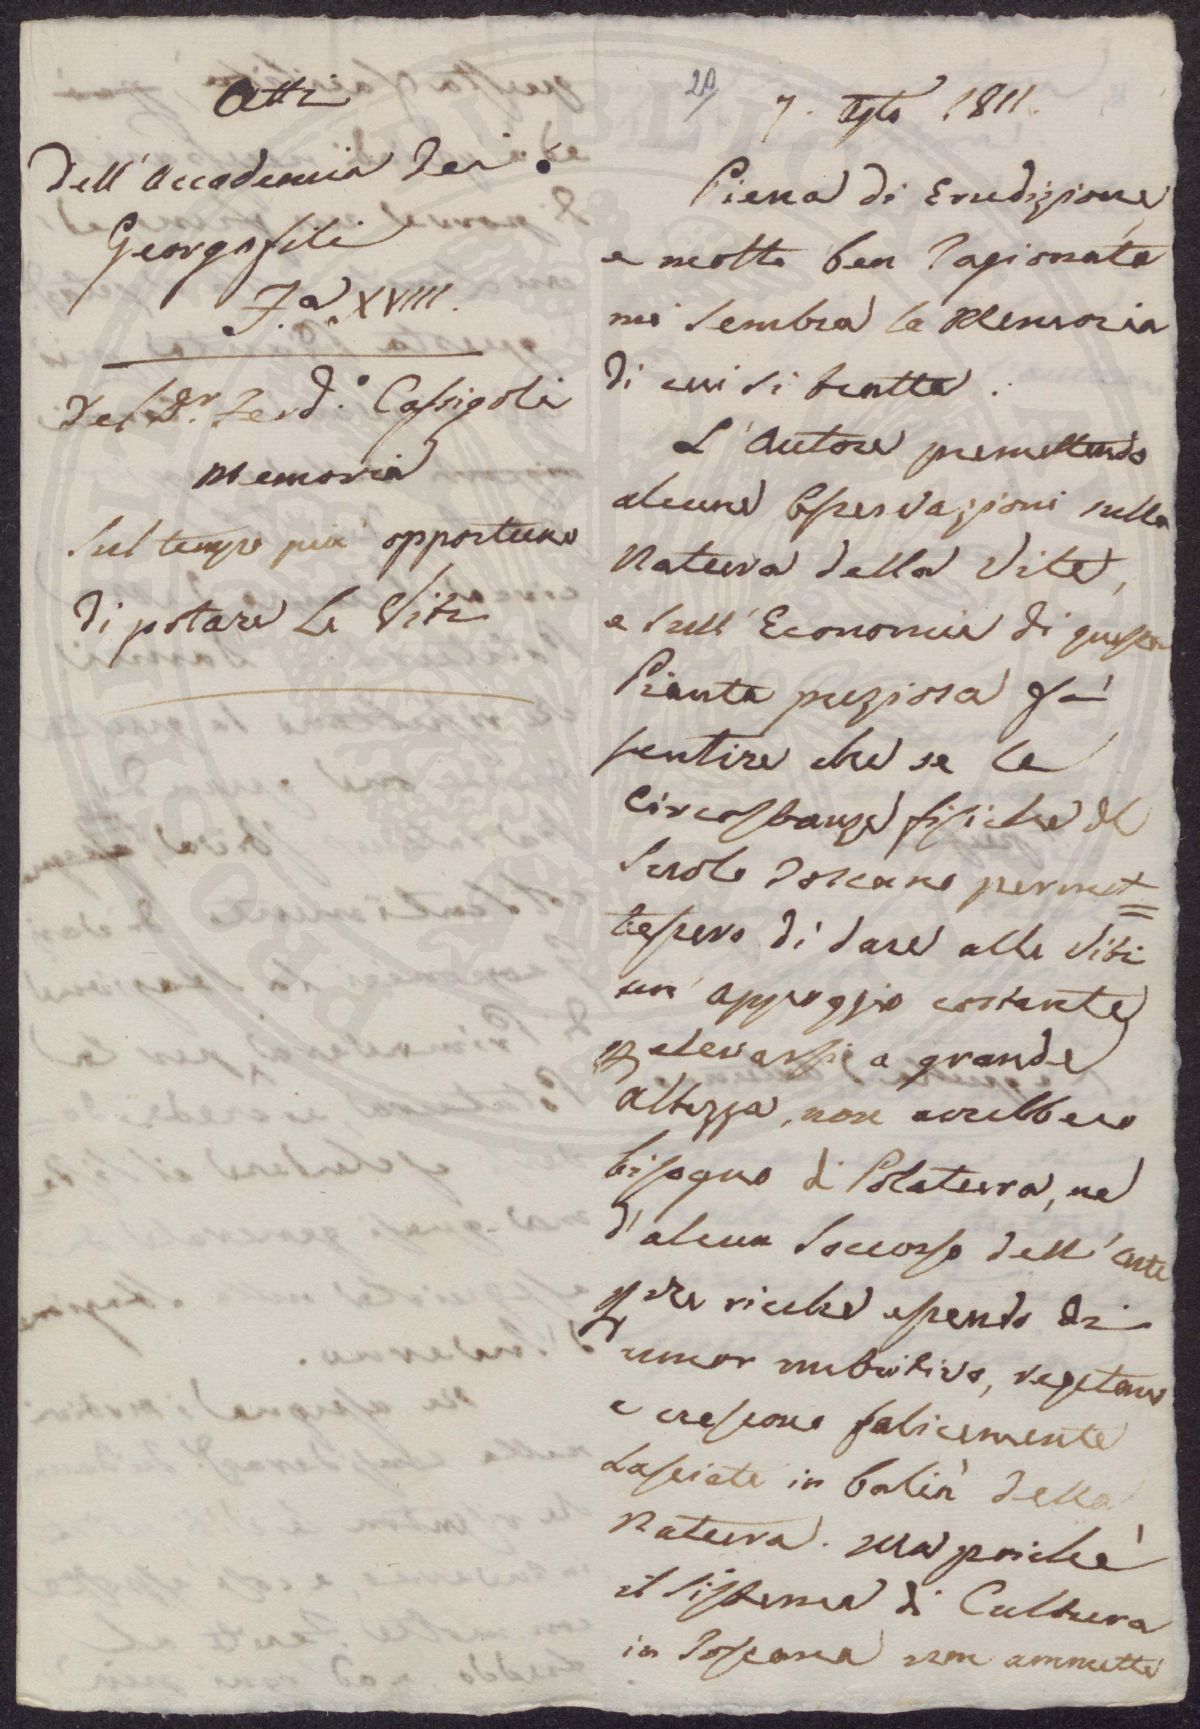 Atti
dell'Accademia dei
Georgofili
XVIII.
del Dr. Ferd.o Cassigoli
Memoria
Sul tempo più opportuno
di potare Le Viti
20
7. Agto 1811.
Piena di Erudizione,
e molto ben ragionata
mi sembra la Memoria
di cui si tratta.
L'Autore premettendo
alcune Osservazioni sulla
Natura della Vite,
e sull'Economia di questa
Pianta preziosa fà
sentire che se le
Circostanze fisiche del
Suolo Toscano permet=
tessero di dare alle Viti
un'appoggio costante
p elevarsi a grande
Altezza, non avrebbero
bisogno di Potatura, ne
d'alcun Soccorso dell'Arte
ricche essendo di
umor nutritivo, vegetano
e crescono felicemente
Lasciate in balìa della
Natura. Ma poichè
il Sistema di Cultura
in Toscana non ammette